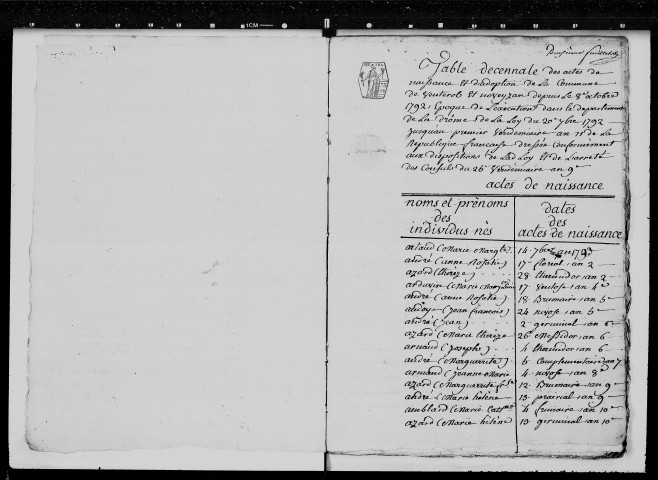 Deuxieme feuillet
Table decennale des actes de
naissance et d'adoption de la Commune
de Venterol et Noveyzan depuis le 8e octobre
1792, Epoque de l'execution dans le departement
de la drôme de la Loy du 20e 7bre 1792
jusquau premier vendemiaire an 11e de la
Republique francaise dressée conformement
aux dispositions de lad. Loy et de l'arreté
des Consuls du 25e vendemiaire an 9e
actes de naissance
noms et prénoms des individus nés
dates des actes de naissance
artaud (Marie Margte) 14 7bre an 1793
andré (anne Rosalie) 17 floreal an 2
azard (therèze) 28 thermidor an 2
arduvin (Marie 17 ventose an 4e
andré (anne Rosalie) 18 Brumaire an 5e
audoye (Jean francois) 24 nivose an 5e
andré (Jean) 2 germinal an 6e
azard (Marie therèze 26 Messidor an 6
arnaud (Joseph) 4 thermidor an 6
andré (Marguerite) 6 Complementaire an 7
armand (Jeanne Marie 4 nivose an 8e
azard (Marguerite 12 Brumaire an 9e
andré (Marie hélène 13 prairial an 9e
amblard (Marie Cathne 4 frimaire an 10e
azard (Marie hélène 13 germinal an 10e
1CM